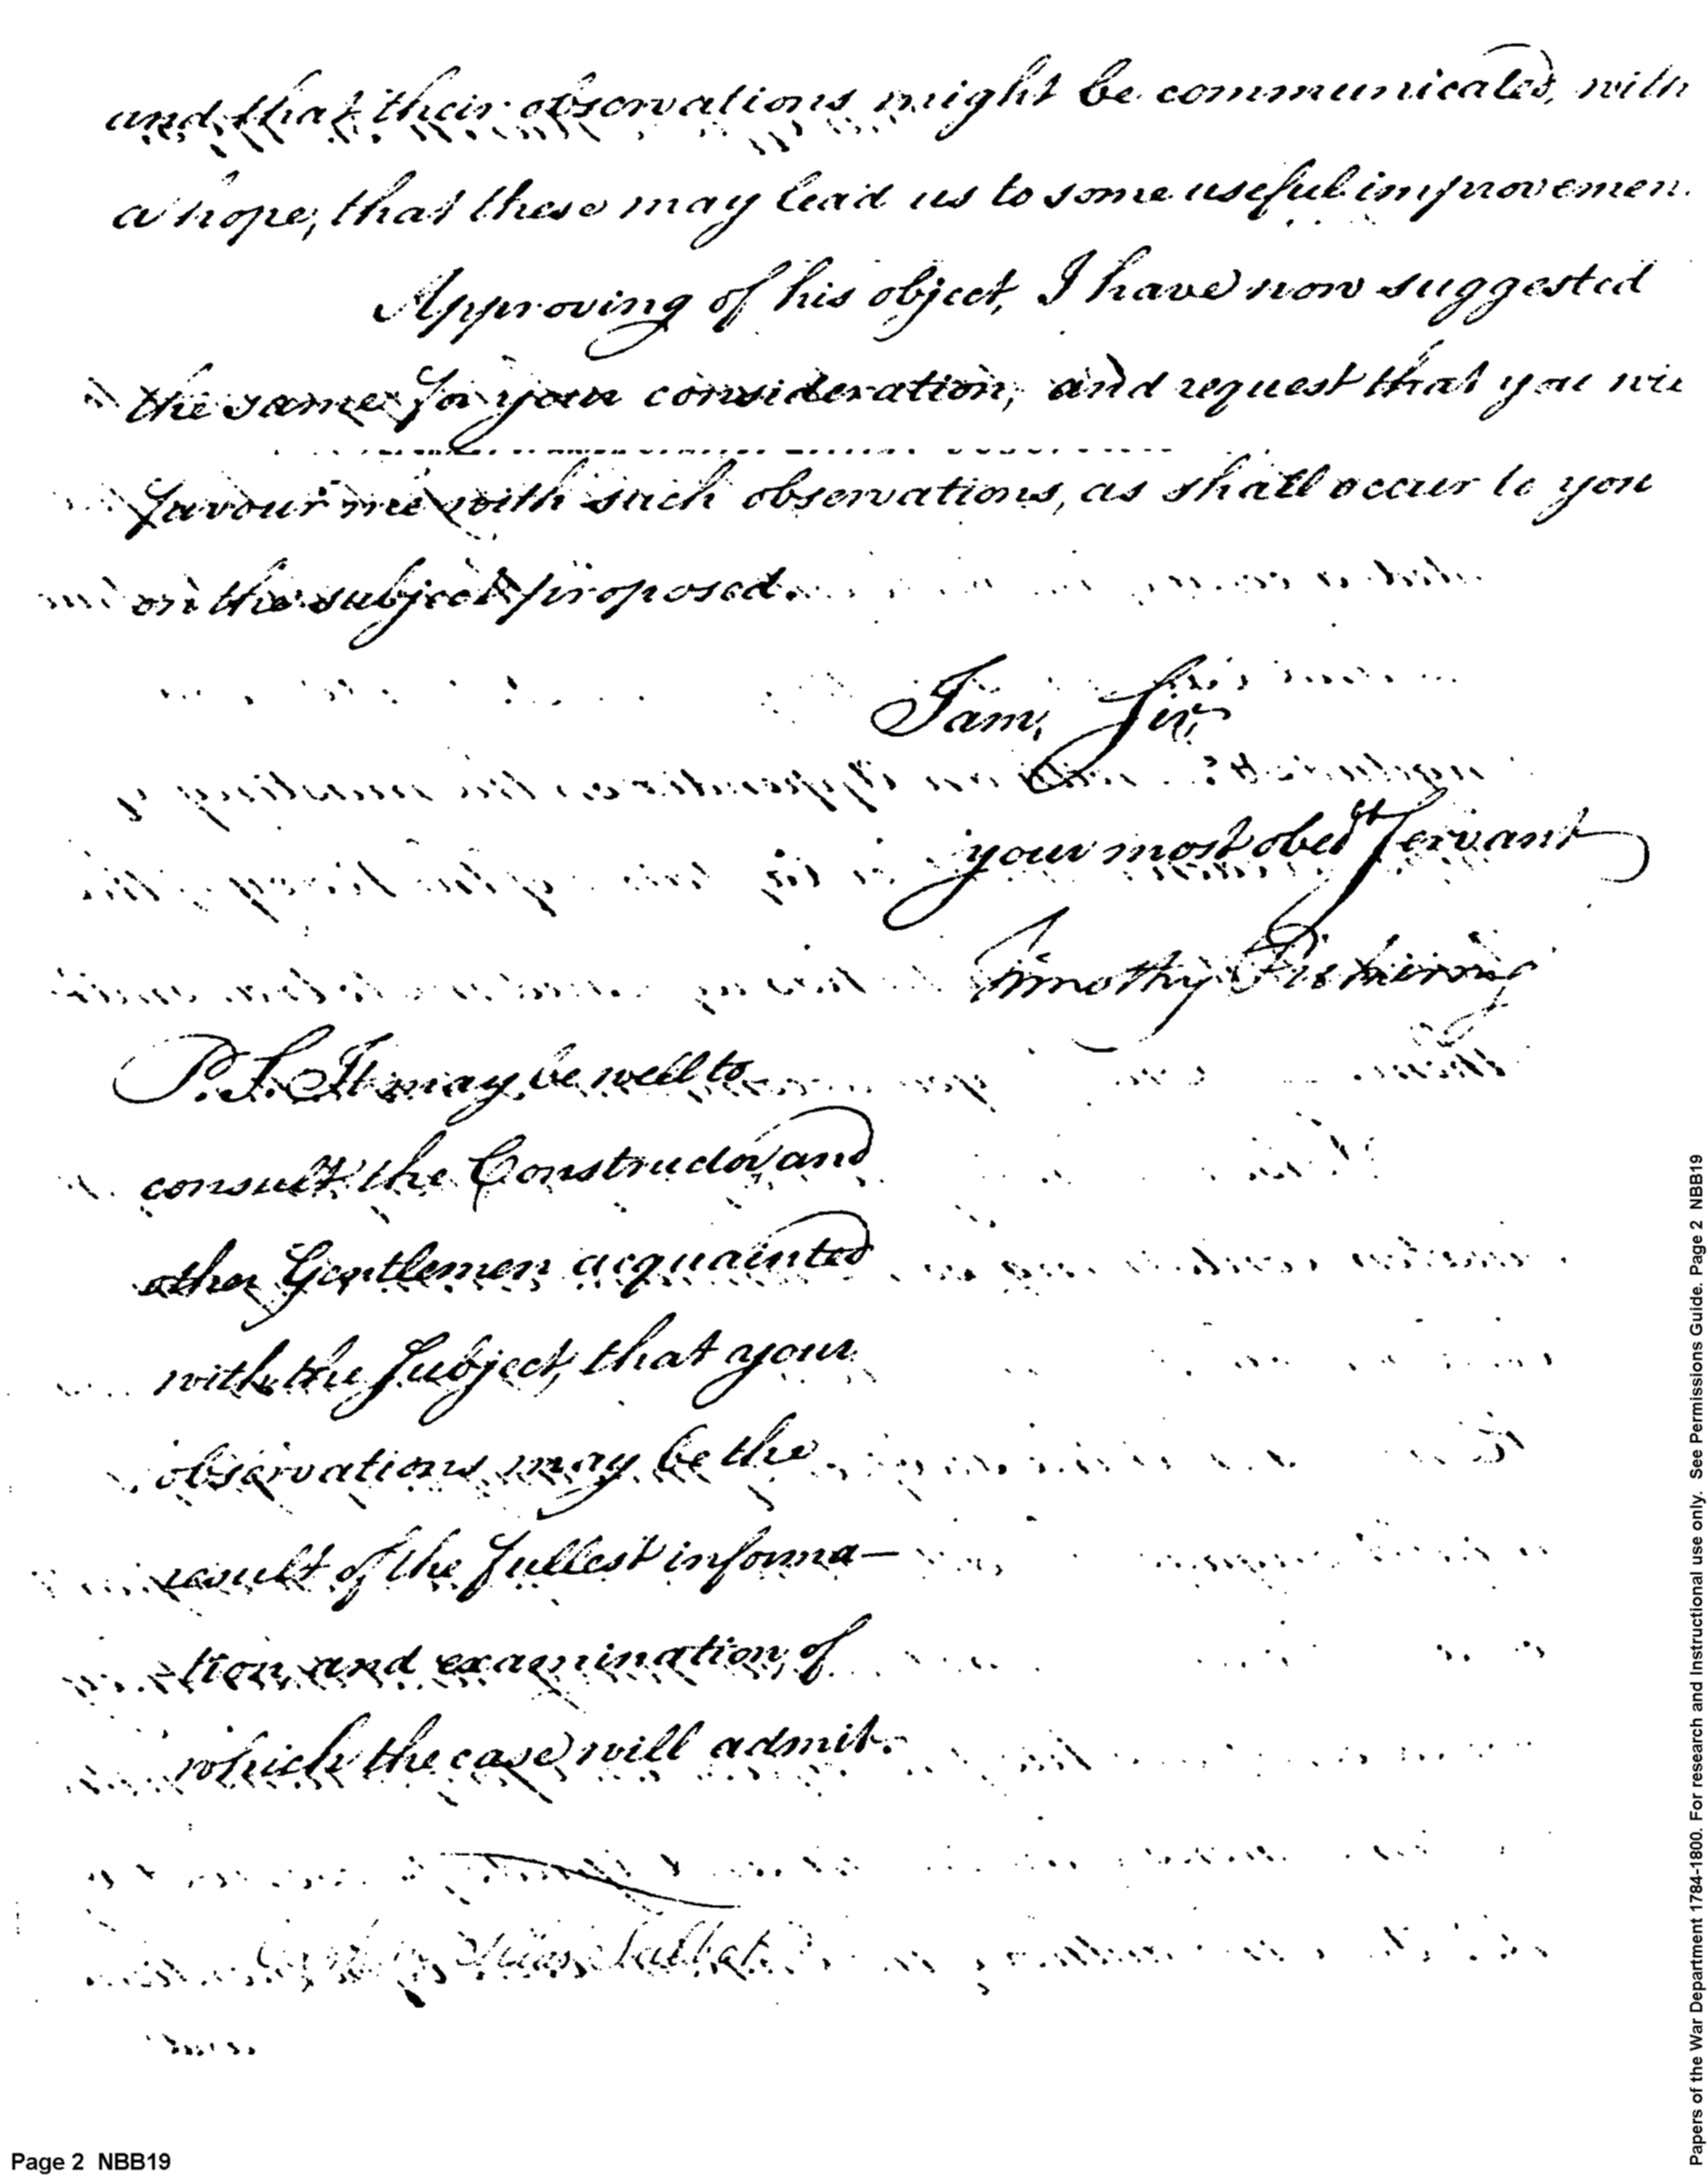 and that their observations might be communicated, with
a hope, that these may lead us to some useful improvemen
Approving of his object, I have now suggested
the same for your consideration, and request that you wil
favour me with such observations, as shall occur to you
on the subject proposed.
I am, Sir,
your most obedt Servant
Timothy Pickering
P.S. It may be well to
consult the Constructor and
other Gentlemen acquainted
with the Subject, that your
observations may be the
result of the fullest informa—
tion and examination, of
which the case will admit.
Silas Talbot
Page 2 NBB19
Papers of the War Department 1784-1800. For research and Instructional use only. See Permissions Guide. Page 2 NBB19